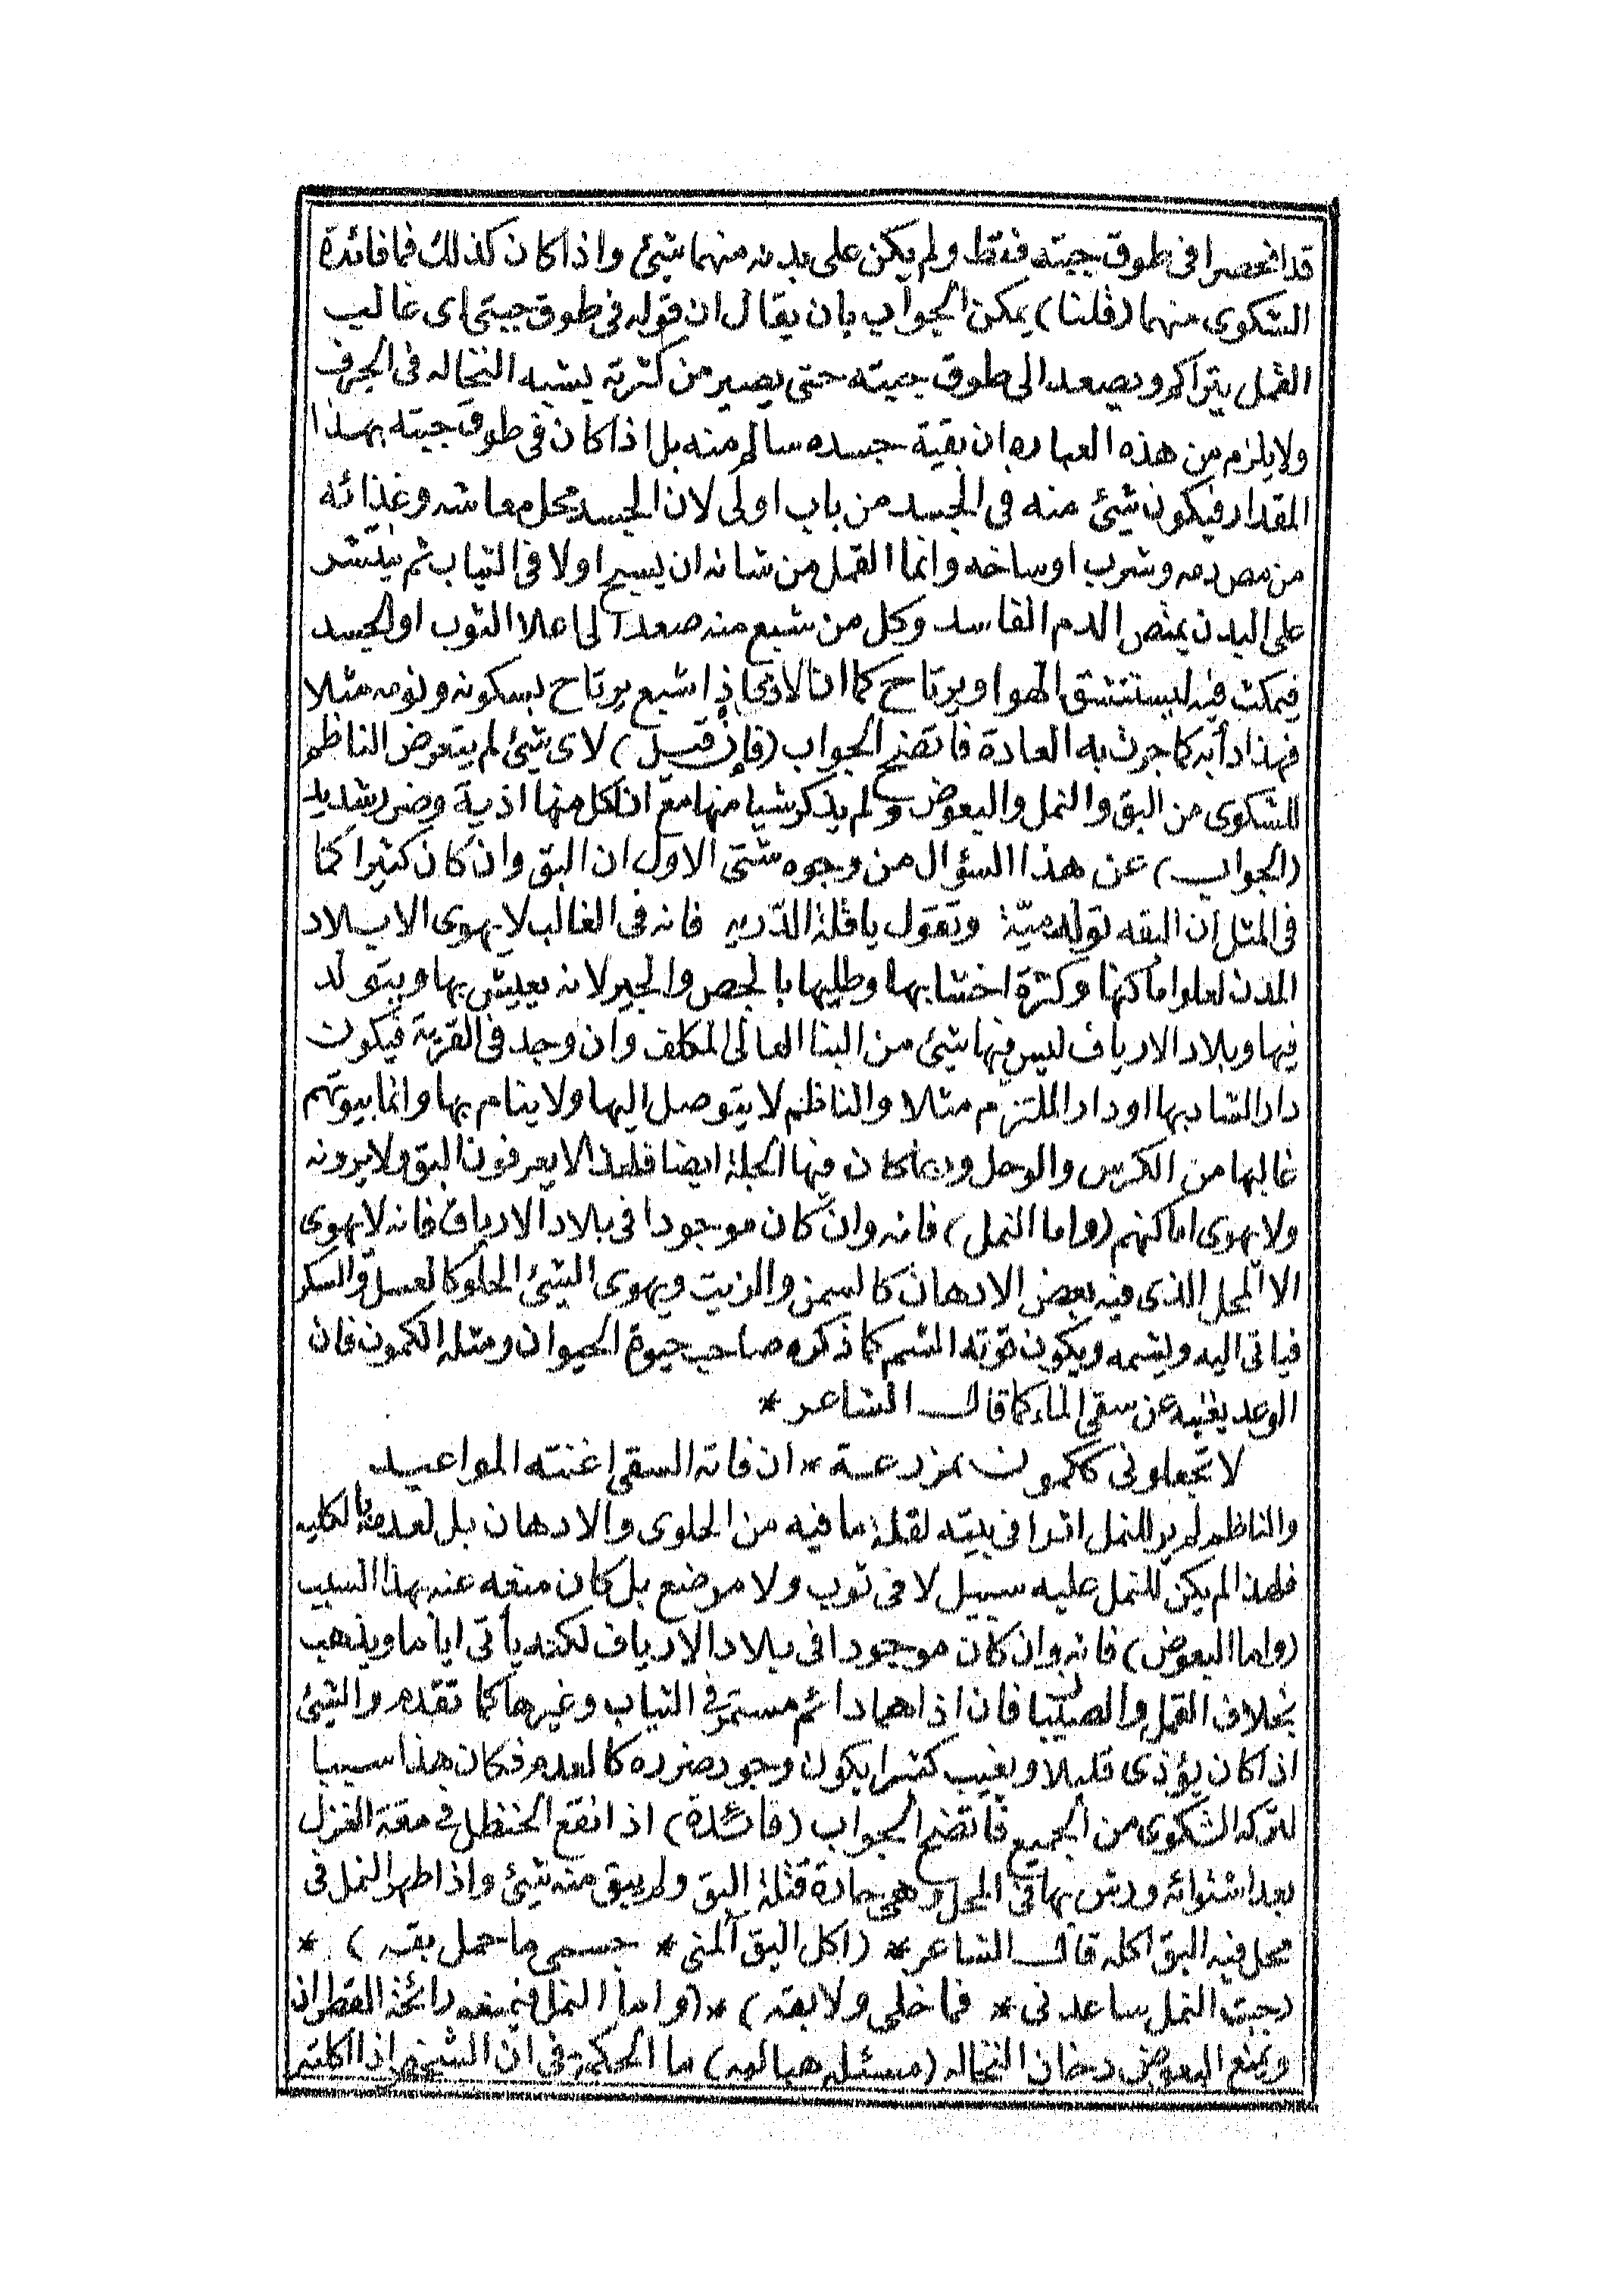 قد انحصرا فى طوق جبته فقط ولم يكن على بدنه منهما شئ واذا كان كذلك فما فائدة
الشكوى منهما (قلنا) يمكن الجواب بان يقال ان قوله فى طوق جبتى اى غالب
القمل يتراكم ويصعد الى طوق جبته حتى يصير من كثرته يشبه النخاله فى الجرف
ولا يلزم من هذه العباره ان بقية جسده سالم منه بل اذا كان فى طوق جبته بهذا
المقدار فيكون شئ منه فى الجسد من باب اولى لان الجسد محل معاشه وغذائه
من مص دمه وشرب اوساخه وانما القمل من شانه ان يسيح اولا فى الثياب ثم ينتشر
على البدن يمتص الدم الفاسد وكل من شبع منه صعد الى اعلا الثوب او الجسد
فيمكث فيه ليستنشق الهوا ويرتاح كما ان الادمى اذا شبع يرتاح بسكونه ونومه مثلا
فهذا دأبه كما جرت به العادة فاتضح الجواب (فإن قيل) لاى شئ لم يتعرض الناظم
للشكوى من البق والنمل والبعوض ولم يذكر شيا منها مع ان لكل منها اذية وضرر شديد
(الجواب) عن هذا السؤال من وجوه شتى الاول ان البق وان كان كثيرا كما
فى المثل ان البقه تولد ميّة وتقول يا قلة الذريه فانه فى الغالب لا يهوى الا بلاد
المدن لعلو اماكنها وكثرة اخشابها وطليها بالجص والجير لانه يعيش بها ويتولد
فيها وبلاد الارياف ليس فيها شئ من البنا العالى المكلف وان وجد فى القرية فيكون
دار الشاد بها او دار الملتزم مثلا والناظم لا يتوصل اليها ولا ينام بها وانما بيوتهم
غالبها من الكرس والوحل وربما كان فيها الجلة ايضا فلهذا لا يعرفون البق ولا يرونه
ولا يهوى اماكنهم (واما النمل) فانه وان كان موجودا فى بلاد الارياف فانه لا يهوى
الا المحل الذى فيه بعض الادهان كالسمن والزيت ويهوى الشئ الحلو كالعسل والسكر
فياتى اليه ويشمه ويكون قوته الشم كما ذكره صاحب حيوة الحيوان ومثله الكمون فان
الوعد يغنيه عن سقى الماء كما قال الشاعر *
لا تجعلونى ككمون بمزرعة * ان فاته السقى اغنته المواعيد
والناظم لم ير للنمل اثرا فى بيته لقلة ما فيه من الحلوى والادهان بل لعدمه بالكليه
فلهذا لم يكن للنمل عليه سبيل لا فى ثوب ولا موضع بل كان منعه عنه بهذا السبب
(واما البعوض) فانه وان كان موجودا فى بلاد الارياف لكنه يأتى اياما ويذهب
بخلاف القمل والصيبان فان اذاهما دائم مستمر فى الثياب وغيرها كما تقدم والشئ
اذا كان يؤذى قليلا ويغيب كثيرا يكون وجود ضرره كالعدم فكان هذا سببا
لتركه الشكوى من الجميع فاتضح الجواب (فائدة) اذا نقع الحنظل فى مقة الغزل
بعد اشتوائه ورش بها فى المحل وهى حارة قتلة البق ولم يبق منه شئ واذا ظهر النمل فى
محل فيه البق اكله قال الشاعر * (اكل البق آلمنى * جسمى ما حمل بقه) *
رجيت النمل ساعدنى * فما خلى ولا بقه) * (واما النمل فيمنعه رائحة القطران
ويمنع البعوض دخان النخاله (مسئله هباليه) ما الحكمة فى ان الشخص اذا اكلته